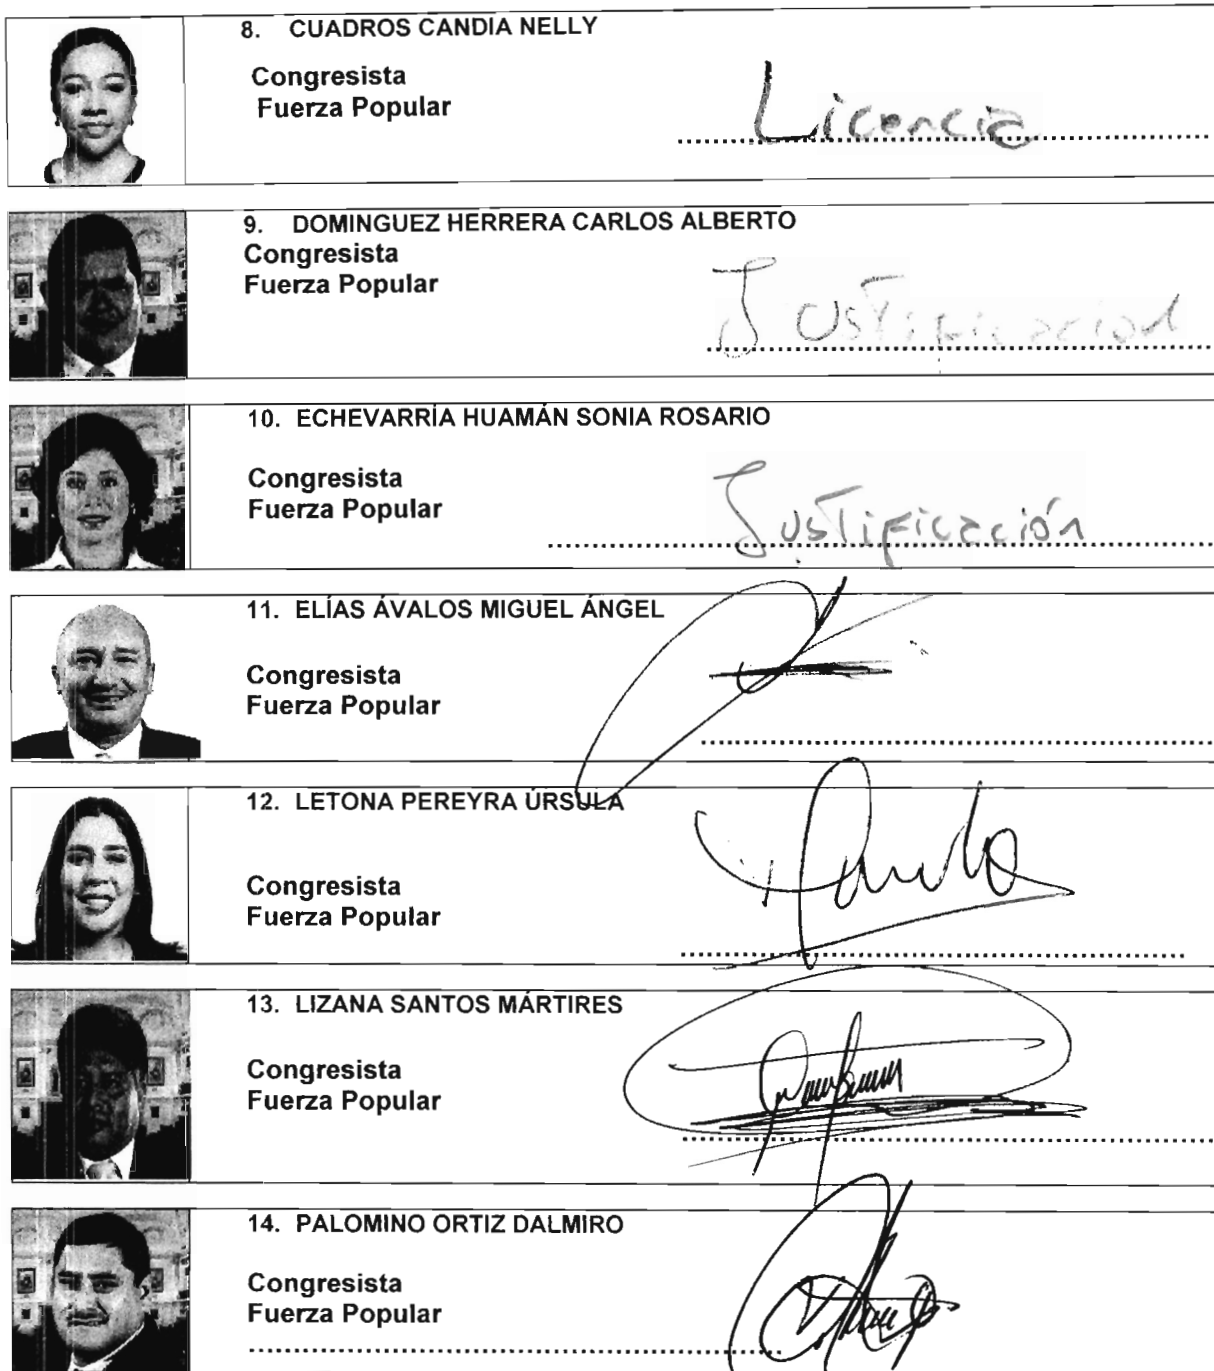 8. CUADROS CANDIA NELLY
Congresista
Fuerza Popular
Licencia
9. DOMINGUEZ HERRERA CARLOS ALBERTO
Congresista
Fuerza Popular
Justificación
10. ECHEVARRÍA HUAMÁN SONIA ROSARIO
Congresista
Fuerza Popular
Justificación
11. ELÍAS ÁVALOS MIGUEL ÁNGEL
Congresista
Fuerza Popular
12. LETONA PEREYRA ÚRSULA
Congresista
Fuerza Popular
13. LIZANA SANTOS MÁRTIRES
Congresista
Fuerza Popular
14. PALOMINO ORTIZ DALMIRO
Congresista
Fuerza Popular